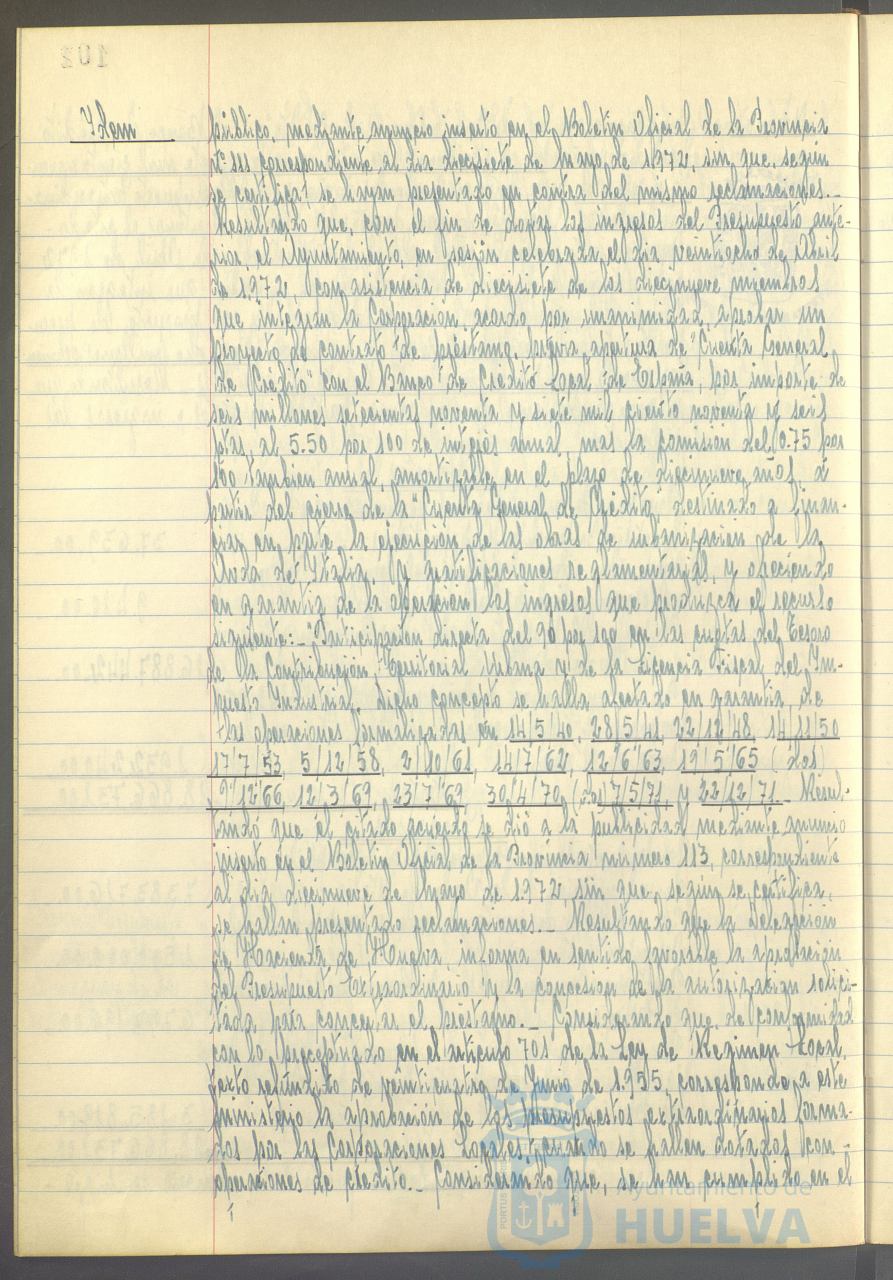 Idem
público, mediante anuncio inserto en el Boletín Oficial de la Provincia
nº 111 correspondiente al día diecisiete de Mayo de 1.972, sin que, según
se certifica se hayan presentado en contra del mismo reclamaciones.-
Resultando que, con el fin de dotar los ingresos del Presupuesto ante-
rior, el Ayuntamiento, en sesión celebrada el día veintiocho de Abril
de 1.972, con asistencia de diecisiete de los diecinueve miembros
que integran la Corporación, acordó por unanimidad, aprobar un
proyecto de contrato de préstamo, previa apertura de "Cuenta General
de Crédito" con el Banco de Crédito Local de España, por importe de
seis millones setecientas noventa y siete mil ciento noventa y seis
ptas, al 5.50 por 100 de interés anual, mas la comisión del 0.75 por
100 tambien anual, amortizable en el plazo de diecinueve años, a
partir del cierre de la "Cuenta General de Crédito", destinado a finan-
ciar en parte la ejecución de las obras de urbanización de la
Avda de Italia, y gratificaciones reglamentarias, y ofreciendo
en garantía de la operación los ingresos que produzca el recurso
siguiente:- "Participación directa del 90 por 100 en las cuotas del Tesoro
de la Contribución Territorial Urbana y de la Licencia Fiscal del Im-
puesto Industrial, dicho concepto se halla afectado en garantía, de
las operaciones formalizadas en 14/5/40, 28/5/41, 22/12/48, 14/11/50
17/7/53, 5/12/58, 2/10/61, 14/7/62, 12/6/63, 19/5/65 (dos)
9/12/66, 12/3/69, 23/7/69, 30/4/70, (dos) 7/5/71, y 22/12/71.- Resul-
tando que el citado acuerdo se dió a la publicidad mediante anuncio
inserto en el Boletín Oficial de la Provincia número 113, correspondiente
al día diecinueve de Mayo de 1.972 sin que, según se certifica,
se hallan presentado reclamaciones.- Resultando que la Delegación
de Hacienda de Huelva, informa en sentido favorable la aprobación
del Presupuesto Extraordinario y la concesión de la autorización solici-
tada para concertar el prestamo.- Considerando que, de conformidad
con lo preceptuado en el artículo 701 de la Ley de Régimen Local,
Texto refundido de veinticuatro de Junio de 1.955, corresponde a este
Ministerio la aprobación de los Presupuestos extraordinarios forma-
dos por las Corporaciones Locales, cuando se hallen dotados con
operaciones de crédito.- Considerando que, se han cumplido en el
PORTUS
Ayuntamiento de
HUELVA